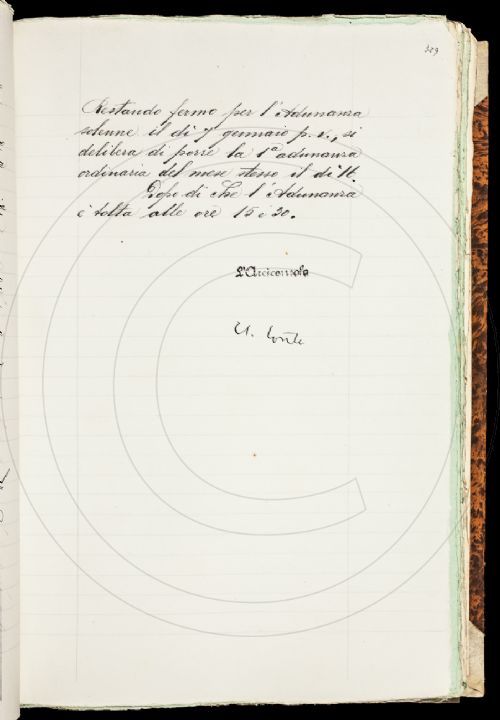 309
Restando fermo per l'Adunanza
solenne il dì 7 gennaio p. v., si
delibera di porre la 1ª adunanza
ordinaria del mese stesso il dì 14.
Dopo di che l'Adunanza
è tolta alle ore 15 e 20.
L'Arciconsolo